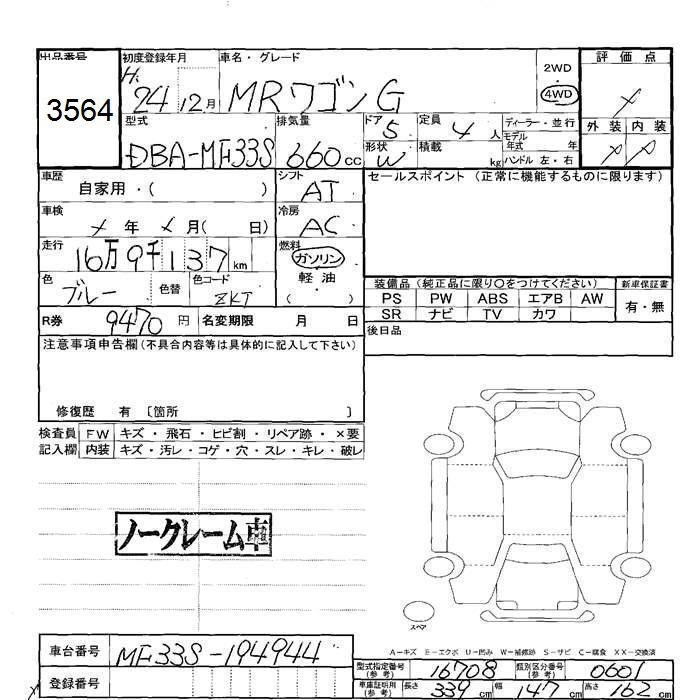 出品番号 3564
初度登録年月 H. 24 12月
車名・グレード MRワゴン G
2WD
4WD
評価点
外装 内装
型式 DBA-MF33S
排気量 660cc
ドア 5
形状 W
定員 4人
積載 kg
ディーラー・並行
モデル年式 年
ハンドル 左・右
車歴 自家用・( )
シフト AT
セールスポイント (正常に機能するものに限ります)
車検 年 月( 日)
冷房 AC
走行 16万9千137km
燃料 ガソリン
軽油・( )
色 ブルー 色替 色コード ZKT
装備品 (純正品に限り○をつけてください) 新車保証書
PS PW ABS エアB AW 有・無
SR ナビ TV カワ
R券 9470円 名変期限 月 日
後日品
注意事項申告欄(不具合内容等は具体的に記入して下さい)
修復歴 有 〔箇所 〕
検査員記入欄
FW キズ・飛石・ヒビ割・リペア跡・×要
内装 キズ・汚レ・コゲ・穴・スレ・キレ・破レ
ノークレーム車
スペア
A-キズ E-エクボ U-凹み W-補修跡 S-サビ C-腐食 XX-交換済
車台番号 MF33S-194944
登録番号
型式指定番号(参考) 16708 類別区分番号(参考) 0601
車庫証明用(参考) 長さ 339cm 幅 147cm 高さ 162cm